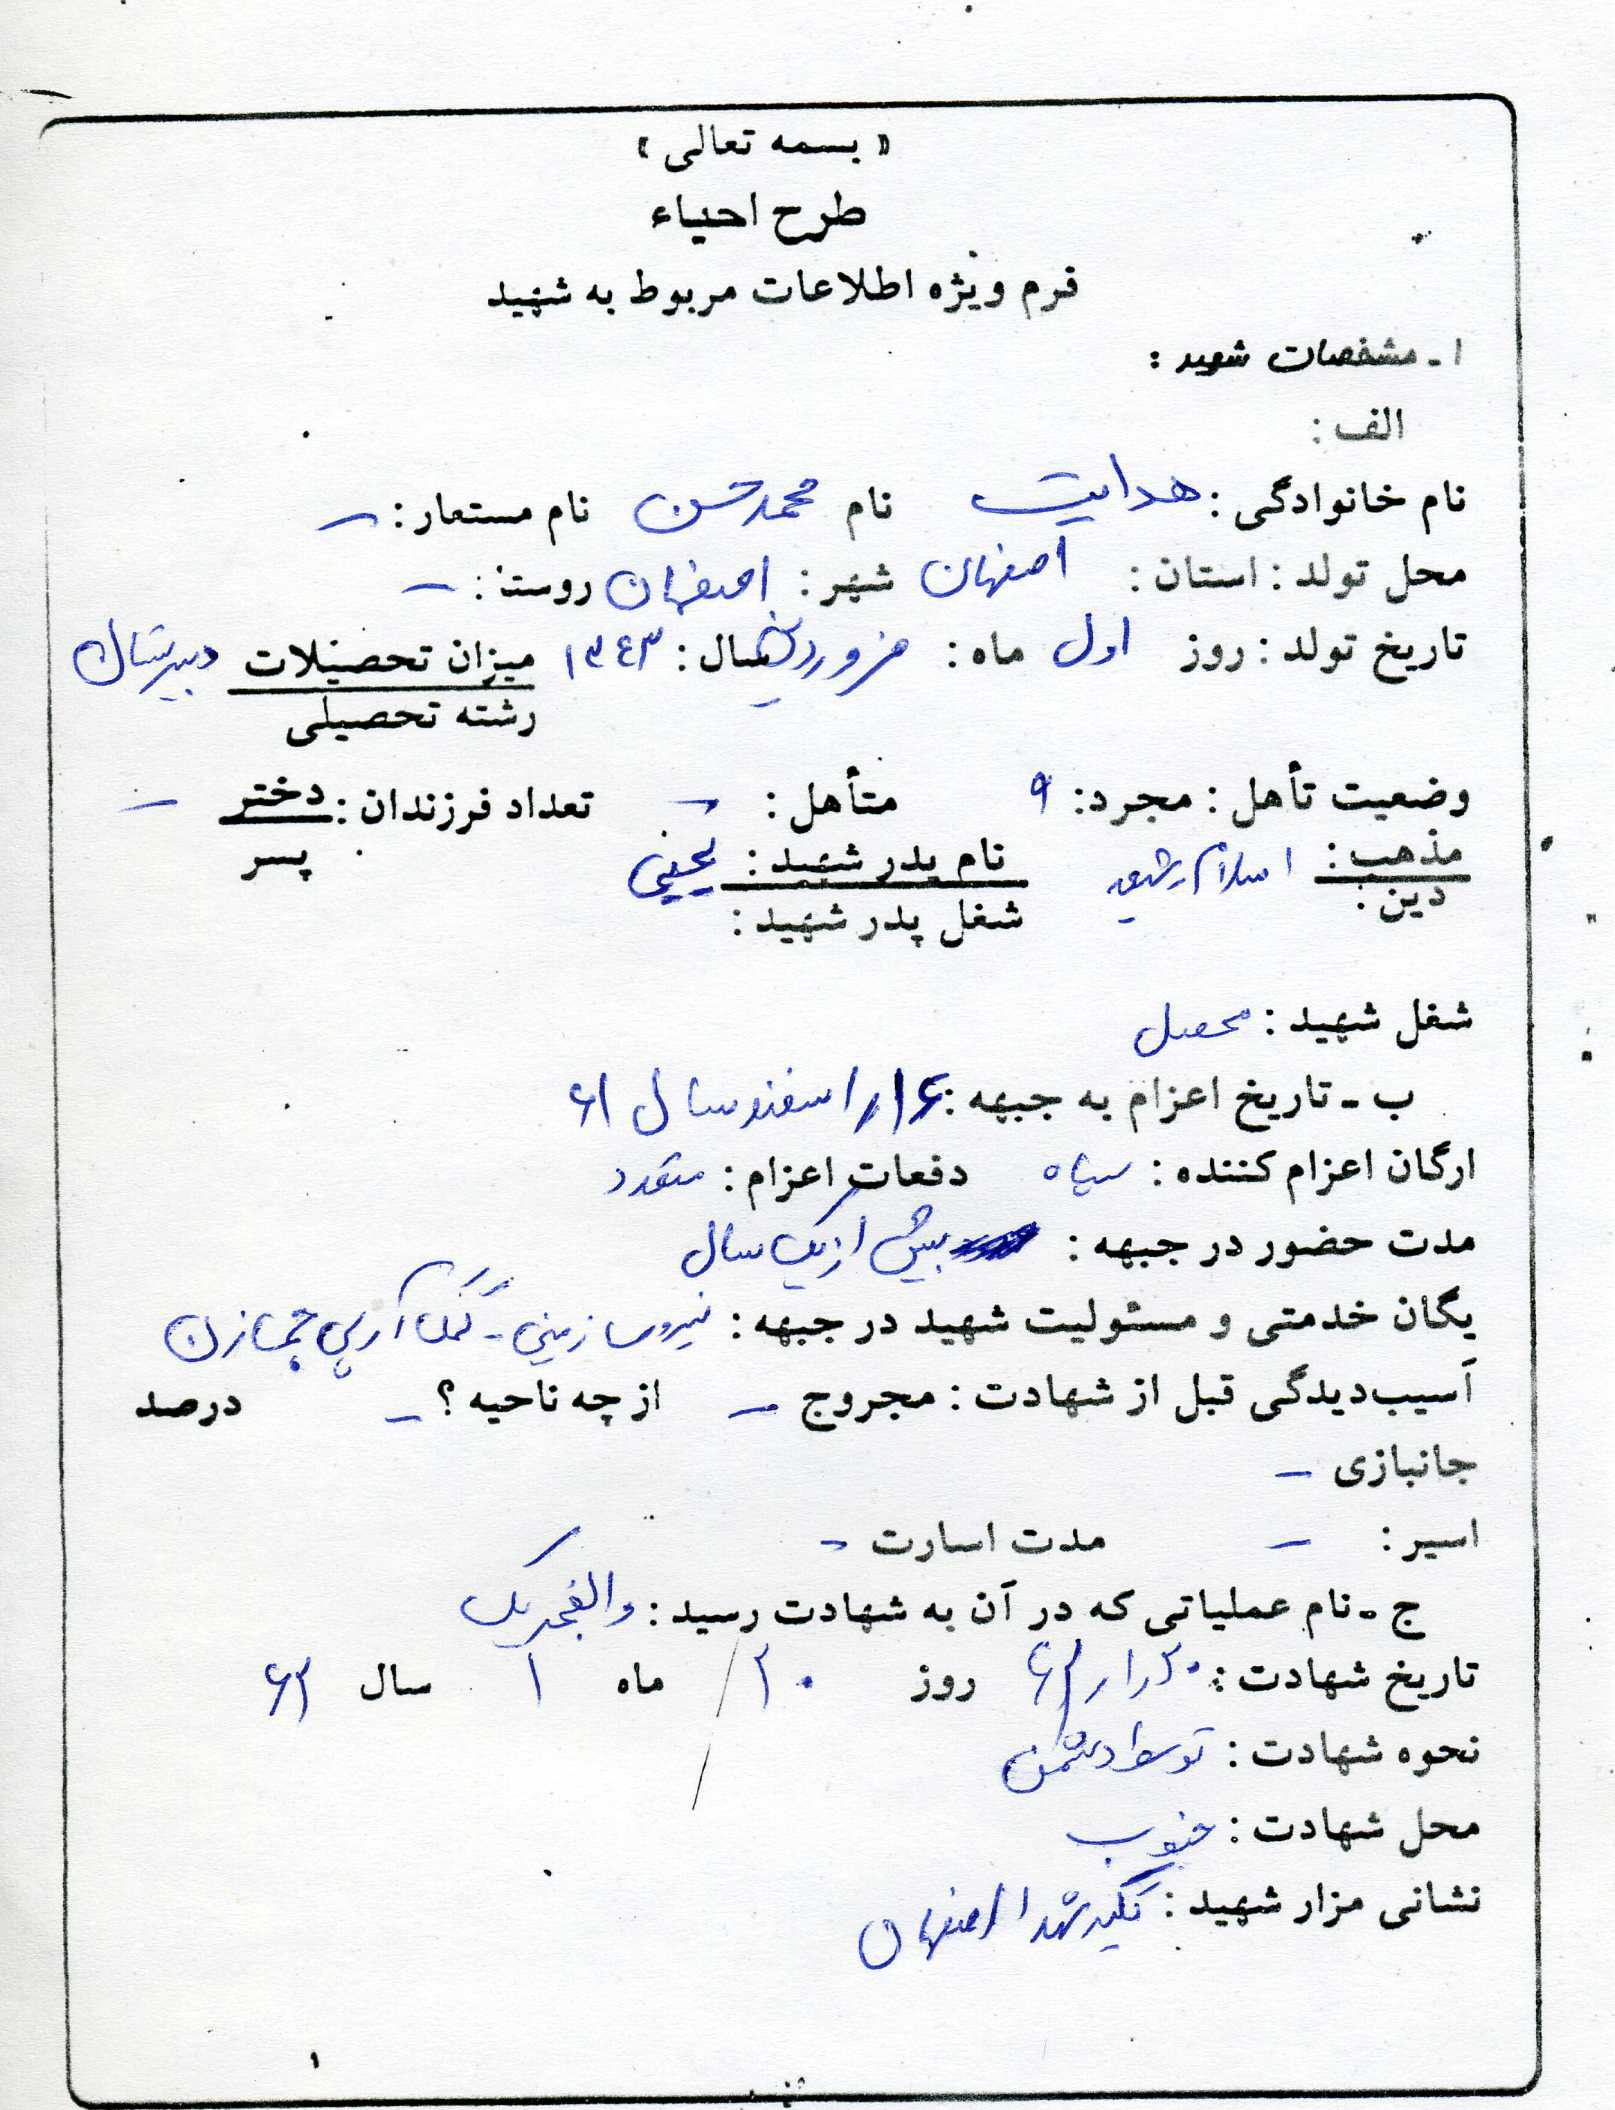 « بسمه تعالی »
طرح احیاء
فرم ویژه اطلاعات مربوط به شهید
۱ ـ مشخصات شهید :
الف :
نام خانوادگی : هدایت نام محمدحسن نام مستعار : –
محل تولد : استان : اصفهان شهر : اصفهان روستا : –
تاریخ تولد : روز اول ماه : فروردین سال : ۱۳۴۳ میزان تحصیلات دبیرستان
رشته تحصیلی
وضعیت تأهل : مجرد : متأهل : – تعداد فرزندان : دختر –
پسر
مذهب : اسلام شیعه نام پدر شهید : یحیی
دین : شغل پدر شهید :
شغل شهید : محصل
ب ـ تاریخ اعزام به جبهه : اسفند سال ۶۱
ارگان اعزام کننده : سپاه دفعات اعزام : متعدد
مدت حضور در جبهه : بیش از یک سال
یگان خدمتی و مسئولیت شهید در جبهه : نیروی زمینی - کمک آرپی جی زن
آسیب‌دیدگی قبل از شهادت : مجروح – از چه ناحیه ؟ – درصد
جانبازی –
اسیر : – مدت اسارت –
ج ـ نام عملیاتی که در آن به شهادت رسید : والفجر یک
تاریخ شهادت : ۲۰/۱/۶۲ روز ۲۰ ماه ۱ سال ۶۲
نحوه شهادت : توسط دشمن
محل شهادت : جنوب
نشانی مزار شهید : تکیه شهدا اصفهان
۱